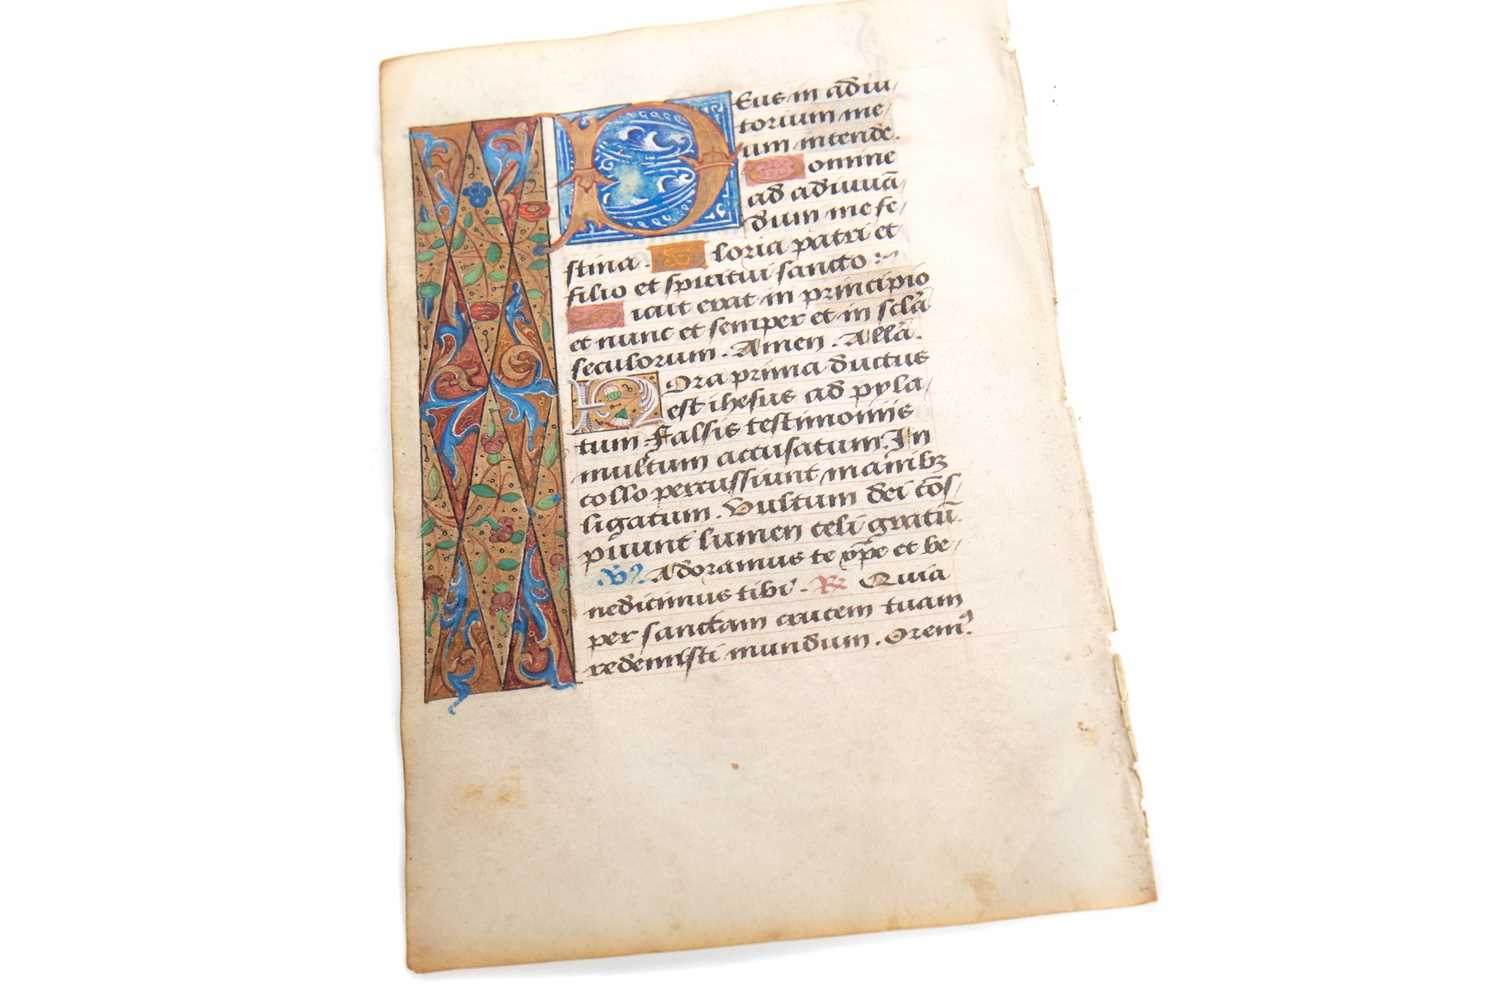 Deus in adiu
torium me
um intende.
Domine
ad adiuuā
dum me fe
stina. Gloria patri et
filio et spiritui sancto:
Sicut erat in principio
et nunc et semper et in sclā
seculorum. Amen. Allā.
Hora prima ductus
est ihesus ad pyla
tum. Falsis testimoniis
multum accusatum. In
collo percussiunt manibz
ligatum. Vultum dei cōs
puunt lumen celi gratū.
V. Adoramus te xp̄e et be
nedicimus tibi. R Quia
per sanctam crucem tuam
redemisti mundum. Orem9.